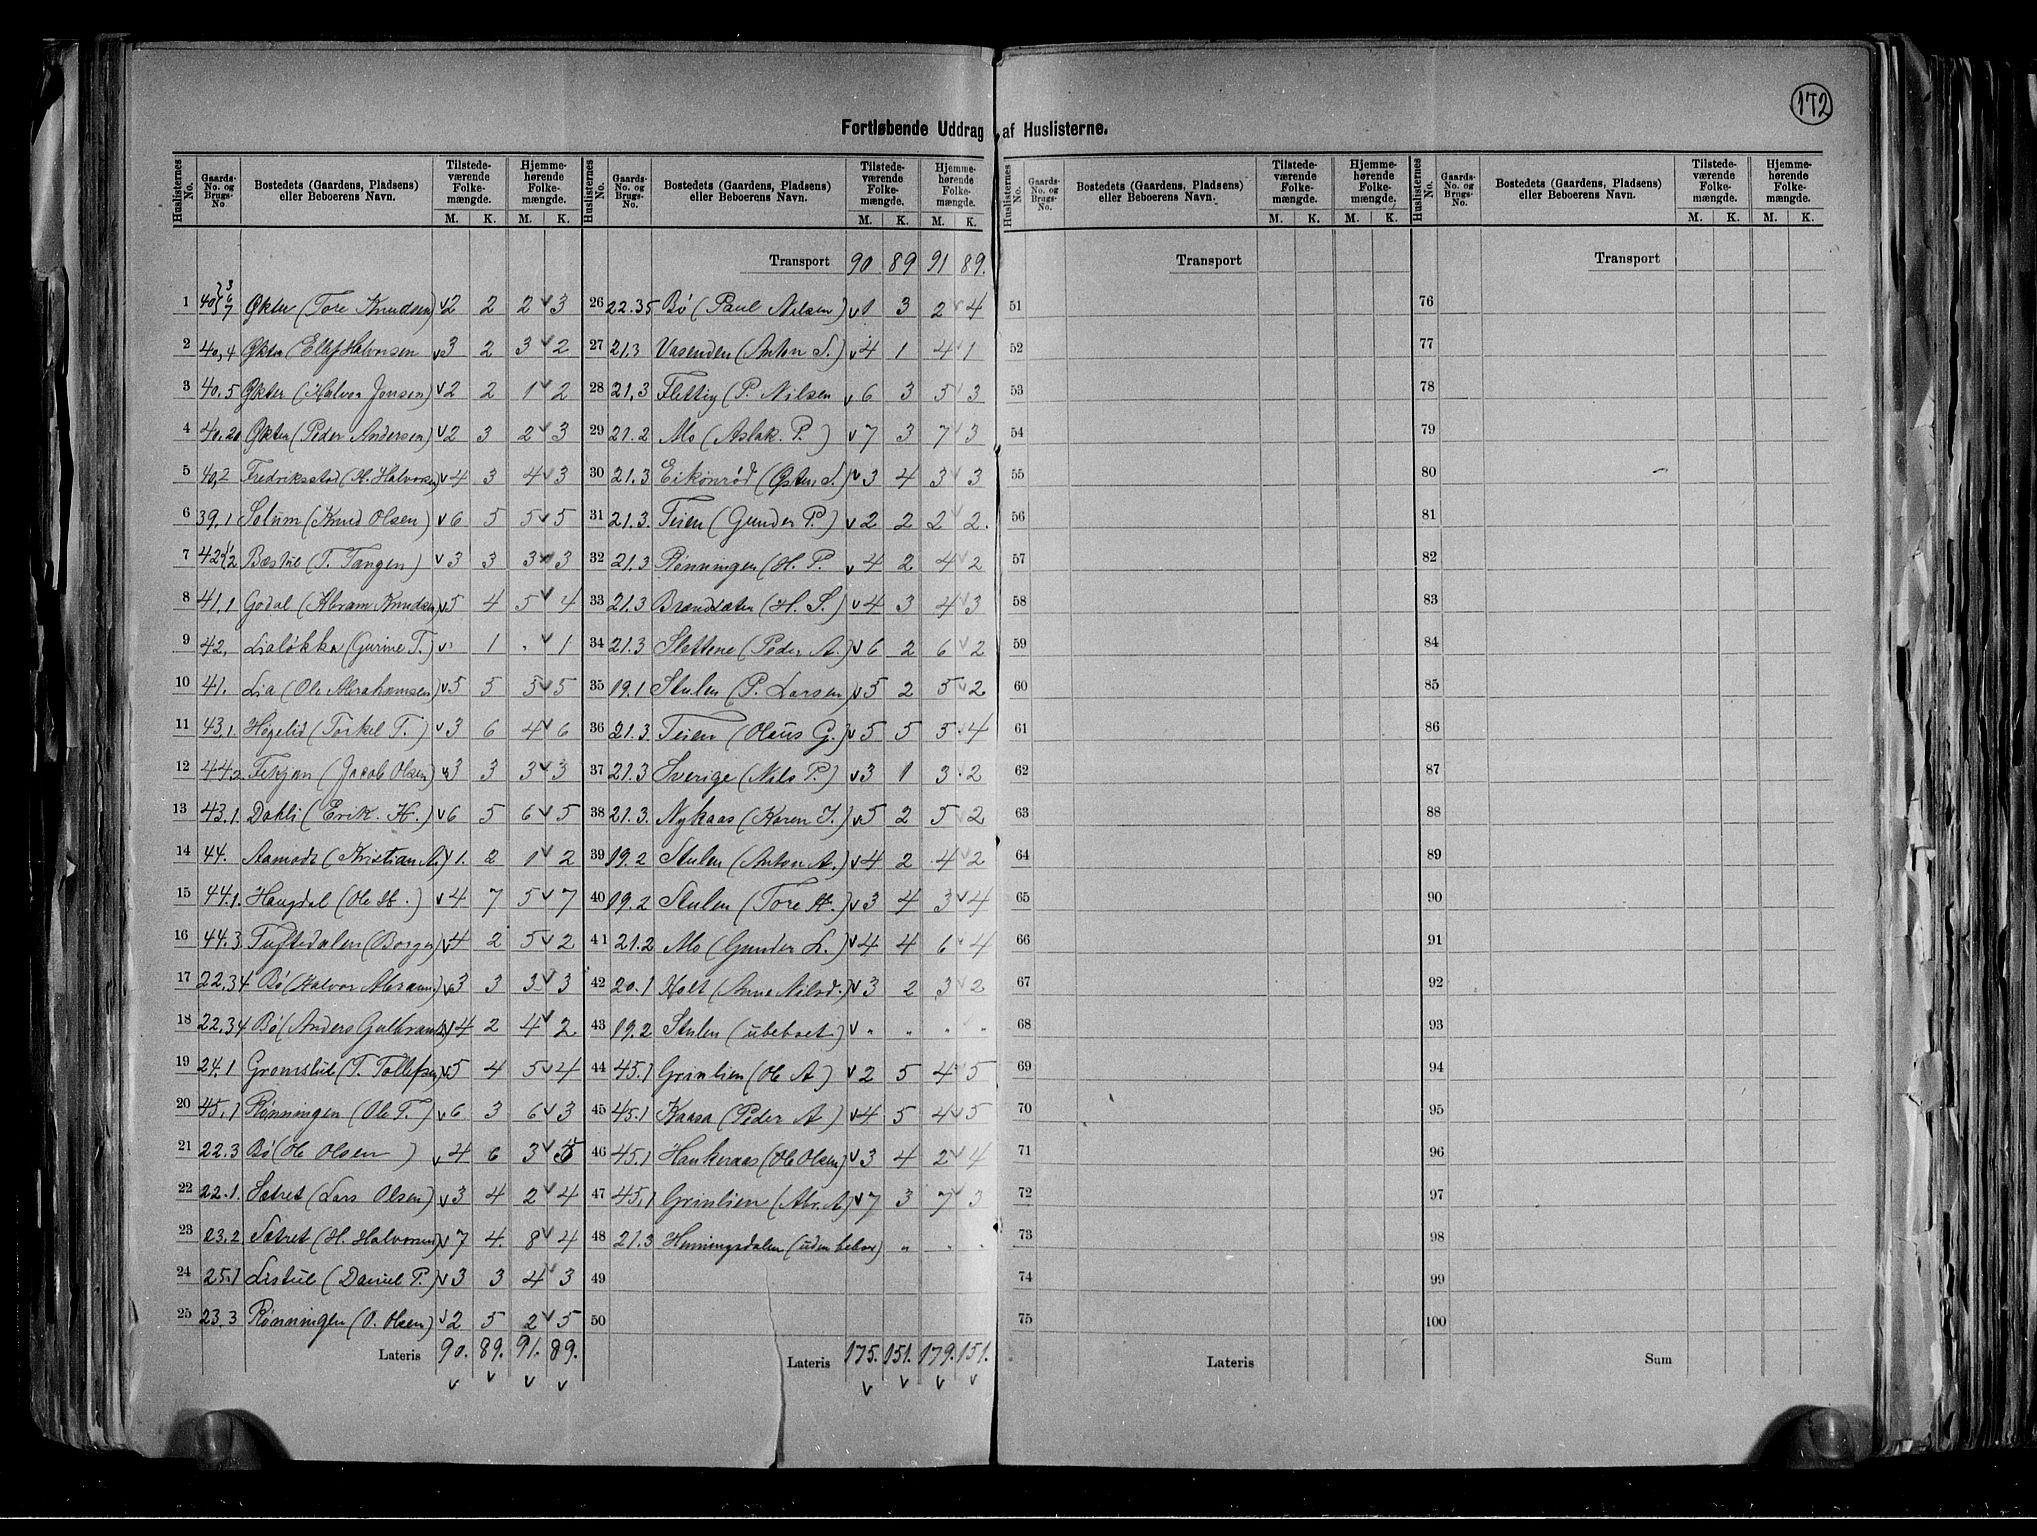 172
Fortløbende Uddrag af Huslisterne.
Huslisternes No. Gaards-No. og Brugs-No. Bostedets (Gaardens, Pladsens) eller Beboerens Navn. Tilstedeværende Folkemængde. M. K. Hjemmehørende Folkemængde. M. K.
1 40 3 6 7 Økter (Tore Knudsen) v2 2 2 v 3
2 40,4 Økter (Ellef Halvorsen v3 2 3 v 2
3 40.5 Økter (Halvor Jensen) v2 2 1 v 2
4 40.20 Økter (Peder Andersen) v2 3 2 v 3
5 40,2 Fredriksstad (H. Halvorsen) v4 3 4 v 3
6 39.1 Solum (Knud Olsen) v6 5 5 v 5
7 42 1/2 Bæstul (T. Tangen) v3 3 3 v 3
8 41,1 Godal (Abram Knudsen) v5 4 5 v 4
9 42, Lialøkka (Gurine T.) v 1 . v 1
10 41. Lia (Ole Abrahamsen) v5 5 5 v 5
11 43,1 Høgelid (Torkel T.) v3 6 4 v 6
12 44.2 (Jacob Olsen) v3 3 3 v 3
13 43.1. Dahli (Erik. H.) v6 5 6 v 5
14 44. Aamodt (Kristian A.) v1. 2 1 v 2
15 44.1. Haugdal (Ole H.) v4 7 5 v 7
16 44.3 Tuftedalen (Borge) v4 2 5 v 2
17 22.34 Bö (Halvor Abram.) v3 3 3 v 3
18 22.34 Bö (Anders Gulbrands) v4 2 4 v 2
19 24.1 Gromstul (T. Tollefsen) v5 4 5 v 4
20 45,1 Rønningen (Ole T.) v6 3 6 v 3
21 22.3 Bö (Ole Olsen) v4 6 3 v 5
22 22.1. Sætret (Lars Olsen) v3 4 2 v 4
23 23.2 Sætret (H. Halvorsen) v7 4. 8 v 4
24 25.1 Listul (Daniel P.) v3 3 4 v 3
25 23.3 Rønningen (O. Olsen) v2 5 2 v 5
Lateris 90. 89. 91. 89.
v v v v
Huslisternes No. Gaards-No. og Brugs-No. Bostedets (Gaardens, Pladsens) eller Beboerens Navn. Tilstedeværende Folkemængde. M. K. Hjemmehørende Folkemængde. M. K.
Transport 90 89 91 89.
26 22.35 Bö (Paul Nilsen) v1 3 2 v 4
27 21.3 Vasenden (Anton S.) v4 1 4 v 1
28 21,3 Flettig (P. Nilsen v6 3 5 v 3
29 21.2 Mo (Aslak. P.) v7 3 7 v 3
30 21.3 Eikonrød (Østen S.) v3 4 3 v 3
31 21.3. Teien (Gunder P.) v2 2 2 v 2.
32 21.3 Rønningen (H. P. v4 2 4 v 2
33 21.3 Brændsæter (H. S.) v4 3 4 v 3
34 21.3 Slettene (Peder A.) v6 2 6 v 2
35 19.1 Stulen (P. Larsen) v5 2 5 v 2
36 21.3. Teien (Oleus G.) v5 5 5 . 4
37 21.3 Sverige (Nils P.) v3 1 3 . 2
38 21.3. Nykaas (Karen J.) v5 2 5 2
39 19.2 Stulen (Anton A.) v4 2 4 v 2
40 19.2 Stulen (Tore H.) v3 4 3 v 4
41 21.2 Mo (Gunder L.) v4 4 6 v 4
42 20.1 Holt (Anne Nilsd.) v3 2 3 v 2
43 19.2 Stulen (ubeboet) v " " " "
44 45.1 Grinlien (Ole A) v2 5 4 v 5
45 45.1 Kaasa (Peder A) v4 5 4 v 5
46 45.1 Haukeraas (Ole Olsen) v3 4 2 v 4
47 45,1 Grinlien (Abr. A) v7 3 7 v 3
48 21.3 Henningsdalen (uden beboe) " " " "
49
50
Lateris 175. 151. 179. 151.
v v v v
Huslisternes No. Gaards-No. og Brugs-No. Bostedets (Gaardens, Pladsens) eller Beboerens Navn. Tilstedeværende Folkemængde. M. K. Hjemmehørende Folkemængde. M. K.
Transport
51
52
53
54
55
56
57
58
59
60
61
62
63
64
65
66
67
68
69
70
71
72
73
74
75
Lateris
Huslisternes No. Gaards-No. og Brugs-No. Bostedets (Gaardens, Pladsens) eller Beboerens Navn. Tilstedeværende Folkemængde. M. K. Hjemmehørende Folkemængde. M. K.
Transport
76
77
78
79
80
81
82
83
84
85
86
87
88
89
90
91
92
93
94
95
96
97
98
99
100
Sum